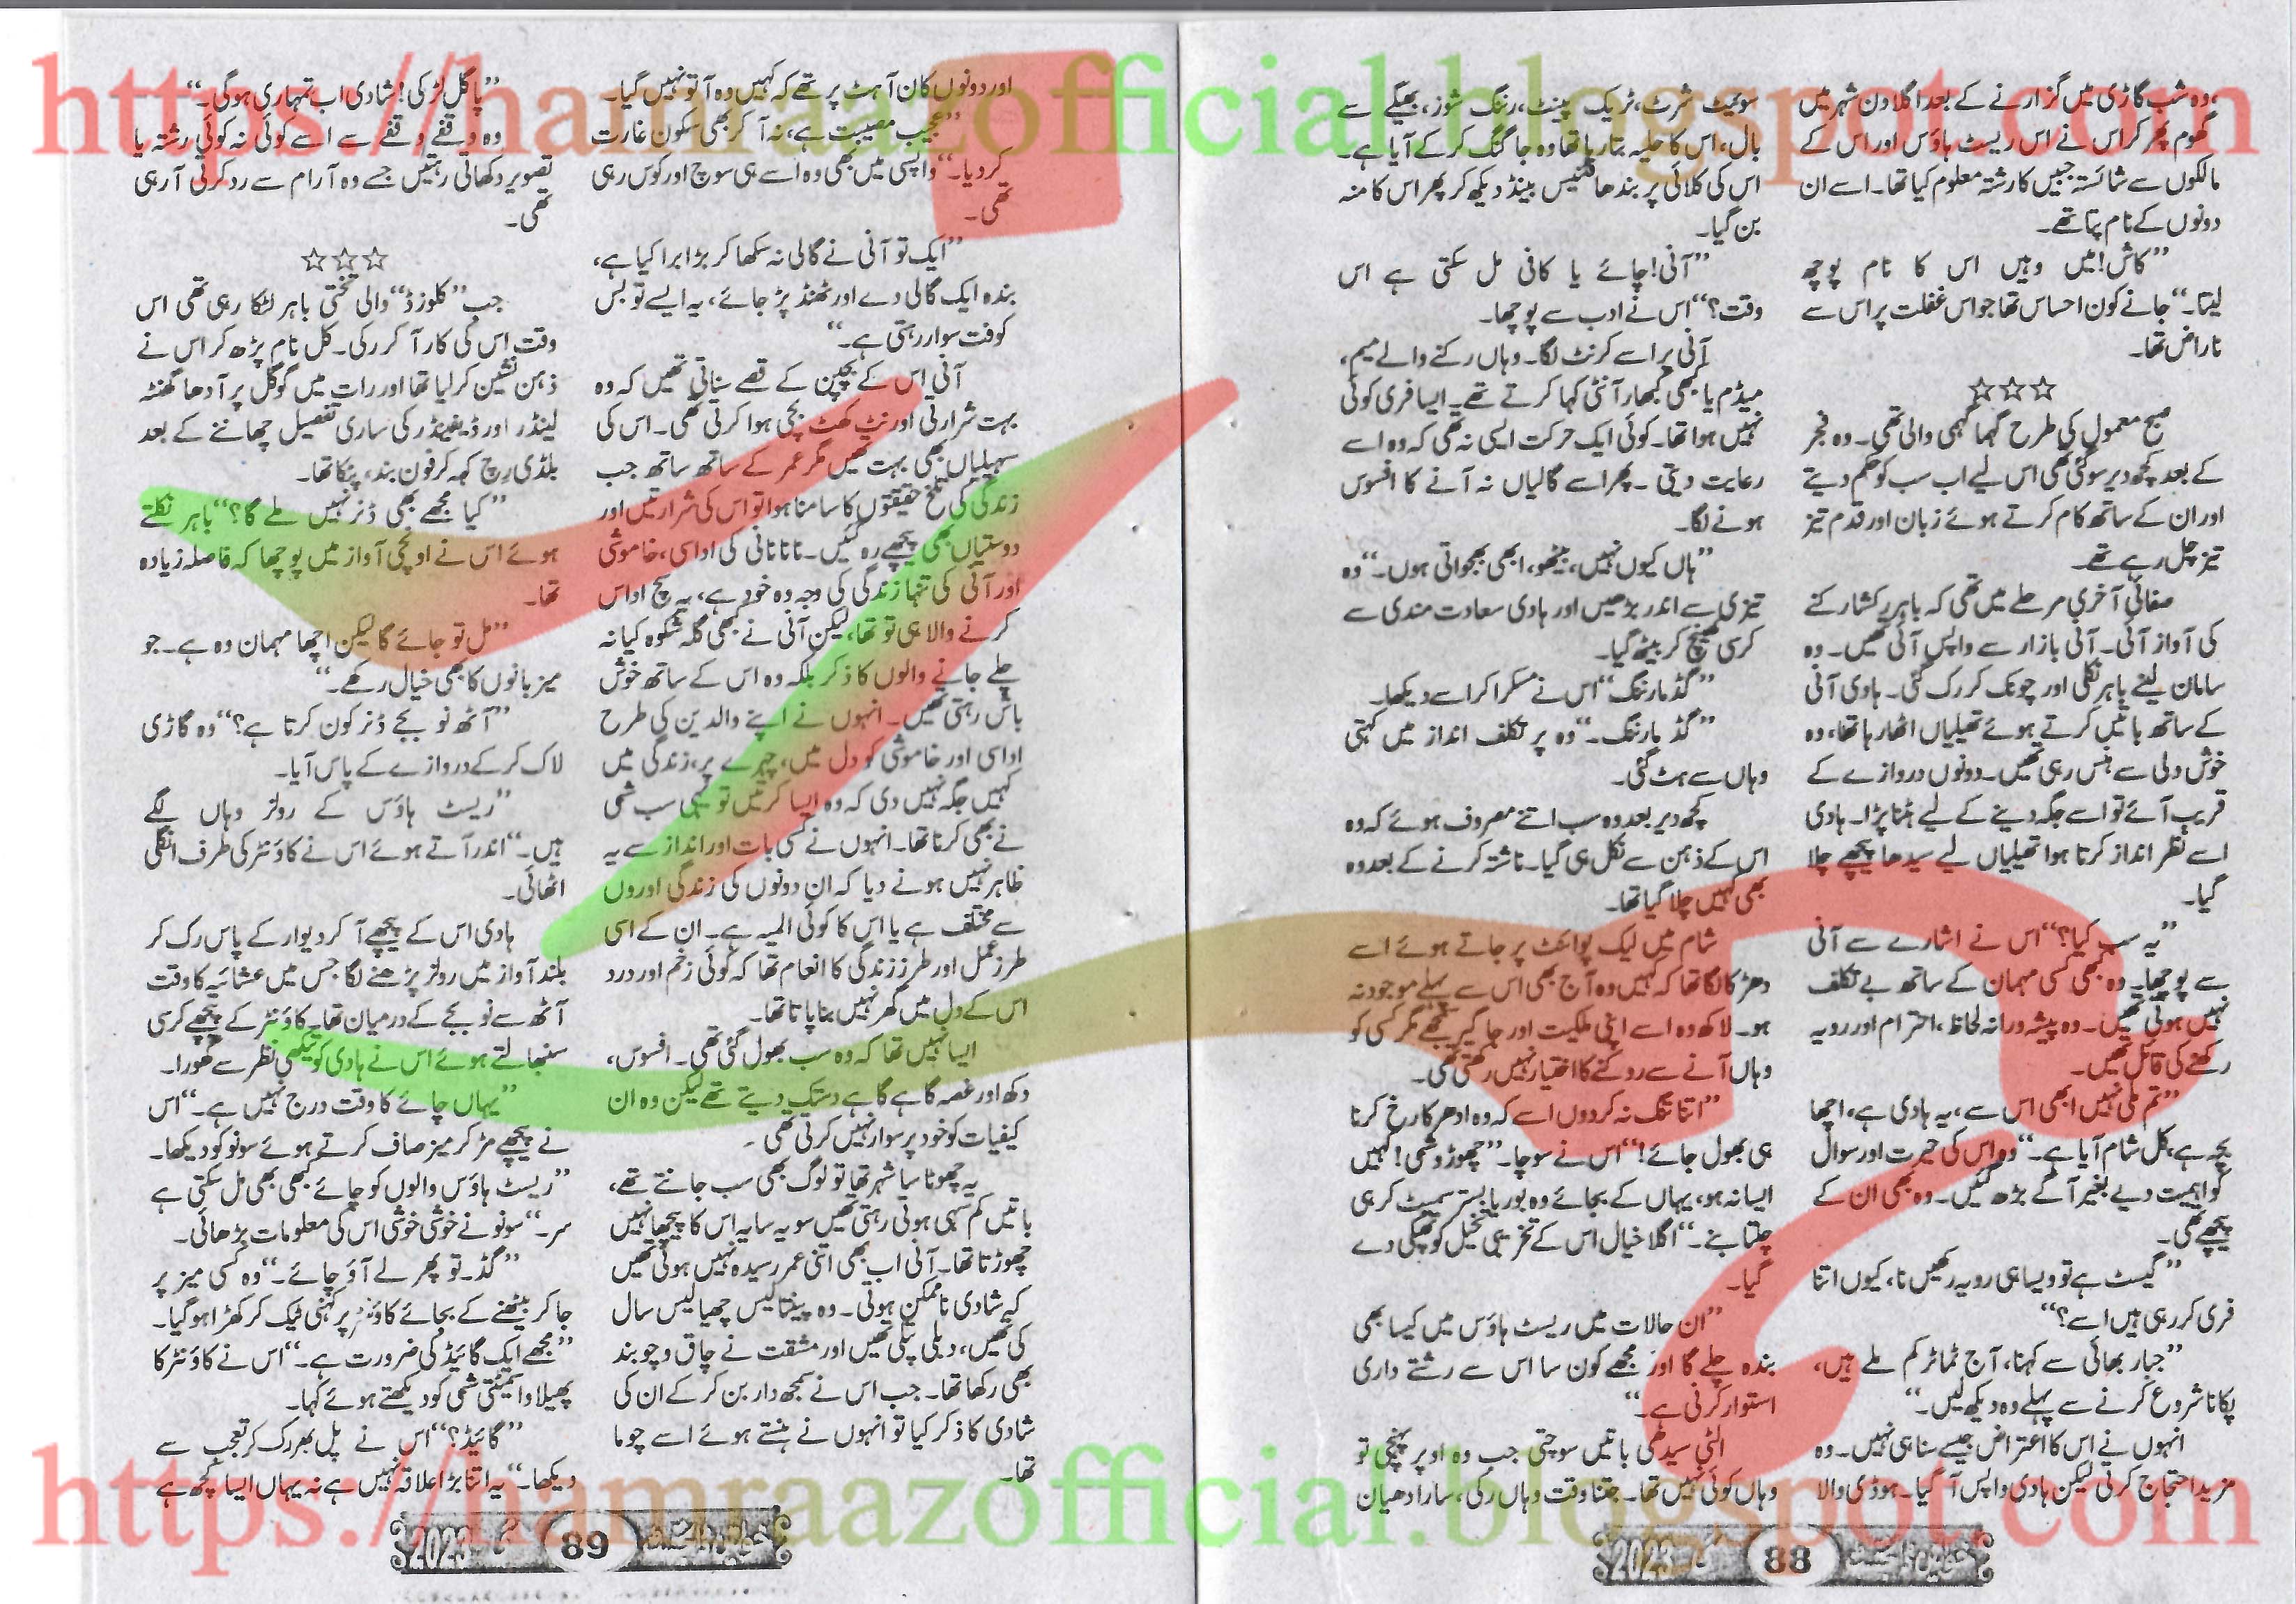 https://hamraazofficial.blogspot.com
،وہ شب گاڑی میں گزارنے کے بعد اگلا دن شہر میں
گھوم پھر کر اس نے اس ریسٹ ہاؤس اور اس کے
مالکوں سے شائستہ جبیں کا رشتہ معلوم کیا تھا۔ اسے ان
دونوں کے نام پتا تھے۔
”کاش! میں وہیں اس کا نام پوچھ
لیتا۔“ جانے کون احساس تھا جو اس غفلت پر اس سے
ناراض تھا۔
☆☆☆
صبح معمول کی طرح گہما گہمی والی تھی۔ وہ فجر
کے بعد کچھ دیر سو گئی تھی اس لیے اب سب کو حکم دیتے
اور ان کے ساتھ کام کرتے ہوئے زبان اور قدم تیز
تیز چل رہے تھے۔
صفائی آخری مرحلے میں تھی کہ باہر رکشا رکنے
کی آواز آئی۔ آنی بازار سے واپس آئی تھیں۔ وہ
سامان لینے باہر نکلی اور چونک کر رک گئی۔ ہادی آنی
کے ساتھ باتیں کرتے ہوئے تھیلیاں اٹھا رہا تھا، وہ
خوش دلی سے ہنس رہی تھیں۔ دونوں دروازے کے
قریب آئے تو اسے جگہ دینے کے لیے ہٹنا پڑا۔ ہادی
اسے نظر انداز کرتا ہوا تھیلیاں لیے سیدھا پیچھے چلا
گیا۔
”یہ سب کیا؟“ اس نے اشارے سے آنی
سے پوچھا۔ وہ کبھی کسی مہمان کے ساتھ بے تکلف
نہیں ہوتی تھیں۔ وہ پیشہ ورانہ لحاظ، احترام اور رویہ
رکھنے کی قائل تھیں۔
”تم ملی نہیں ابھی اس سے، یہ ہادی ہے، اچھا
بچہ ہے، کل شام آیا ہے۔“ وہ اس کی حیرت اور سوال
کو اہمیت دیے بغیر آگے بڑھ گئیں۔ وہ بھی ان کے
پیچھے تھی۔
”گیسٹ ہے تو ویسا ہی رویہ رکھیں نا، کیوں اتنا
فری کر رہی ہیں اسے؟“
”جبار بھائی سے کہنا، آج ٹماٹر کم ملے ہیں،
پکانا شروع کرنے سے پہلے وہ دیکھ لیں۔“
انہوں نے اس کا اعتراض جیسے سنا ہی نہیں۔ وہ
مزید احتجاج کرتی لیکن ہادی واپس آ گیا۔ ہوڈی والا
سوئیٹ شرٹ، ٹریک پینٹ، رننگ شوز، بھیگے سے
بال، اس کا حلیہ بتا رہا تھا وہ جاگنگ کر کے آیا ہے۔
اس کی کلائی پر بندھا فٹنیس بینڈ دیکھ کر پھر اس کا منہ
بن گیا۔
”آنی! چائے یا کافی مل سکتی ہے اس
وقت؟“ اس نے ادب سے پوچھا۔
آنی پر اسے کرنٹ لگا۔ وہاں رکنے والے میم،
میڈم یا کبھی کبھار آنٹی کہا کرتے تھے۔ ایسا فری کوئی
نہیں ہوا تھا۔ کوئی ایک حرکت ایسی نہ تھی کہ وہ اسے
رعایت دیتی۔ پھر اسے گالیاں نہ آنے کا افسوس
ہونے لگا۔
”ہاں کیوں نہیں، بیٹھو، ابھی بھجواتی ہوں۔“ وہ
تیزی سے اندر بڑھیں اور ہادی سعادت مندی سے
کرسی کھینچ کر بیٹھ گیا۔
”گڈ مارننگ“ اس نے مسکرا کر اسے دیکھا۔
”گڈ مارننگ۔“ وہ پر تکلف انداز میں کہتی
وہاں سے ہٹ گئی۔
کچھ دیر بعد وہ سب اتنے مصروف ہوئے کہ وہ
اس کے ذہن سے نکل ہی گیا۔ ناشتہ کرنے کے بعد وہ
بھی کہیں چلا گیا تھا۔
شام میں لیک پوائنٹ پر جاتے ہوئے اسے
دھڑکا لگا تھا کہ کہیں وہ آج بھی اس سے پہلے موجود نہ
ہو۔ لاکھ وہ اسے اپنی ملکیت اور جاگیر سمجھے مگر کسی کو
وہاں آنے سے روکنے کا اختیار نہیں رکھتی تھی۔
”اتنا تنگ نہ کر دوں اسے کہ وہ ادھر کا رخ کرنا
ہی بھول جائے!“ اس نے سوچا۔ ”چھوڑو شمی! کہیں
ایسا نہ ہو، یہاں کے بجائے وہ بوریا بستر سمیٹ کر ہی
چلتا بنے۔“ اگلا خیال اس کے تخریبی تخیل کو تھپکی دے
گیا۔
”ان حالات میں ریسٹ ہاؤس میں کیسا بھی
بندہ چلے گا اور مجھے کون سا اس سے رشتے داری
استوار کرنی ہے۔“
الٹی سیدھی باتیں سوچتی جب وہ اوپر پہنچی تو
وہاں کوئی نہیں تھا۔ جتنا وقت وہاں رکی، سارا دھیان
88 2023
اور دونوں کان آہٹ پر تھے کہ کہیں وہ آ تو نہیں گیا۔
”عجیب مصیبت ہے، نہ آ کر بھی سکون غارت
کر دیا۔“ واپسی میں بھی وہ اسے ہی سوچ اور کوس رہی
تھی۔
”ایک تو آنی نے گالی نہ سکھا کر بڑا برا کیا ہے،
بندہ ایک گالی دے اور ٹھنڈ پڑ جائے، یہ ایسے تو بس
کوفت سوار رہتی ہے۔“
آنی اس کے بچپن کے قصے سناتی تھیں کہ وہ
بہت شرارتی اور نٹ کھٹ بچی ہوا کرتی تھی۔ اس کی
سہیلیاں بھی بہت تھیں مگر عمر کے ساتھ ساتھ جب
زندگی کی تلخ حقیقتوں کا سامنا ہوا تو اس کی شرارتیں اور
دوستیاں بھی پیچھے رہ گئیں۔ نانا نانی کی اداسی، خاموشی
اور آنی کی تنہا زندگی کی وجہ وہ خود ہے، یہ سچ اداس
کرنے والا ہی تو تھا، لیکن آنی نے کبھی گلہ شکوہ کیا نہ
چلے جانے والوں کا ذکر بلکہ وہ اس کے ساتھ خوش
باش رہتی تھیں۔ انہوں نے اپنے والدین کی طرح
اداسی اور خاموشی کو دل میں، چہرے پر، زندگی میں
کہیں جگہ نہیں دی کہ وہ ایسا کرتیں تو یہی سب شمی
نے بھی کرنا تھا۔ انہوں نے کسی بات اور انداز سے یہ
ظاہر نہیں ہونے دیا کہ ان دونوں کی زندگی اوروں
سے مختلف ہے یا اس کا کوئی المیہ ہے۔ ان کے اسی
طرز عمل اور طرز زندگی کا انعام تھا کہ کوئی زخم اور درد
اس کے دل میں گھر نہیں بنا پاتا تھا۔
ایسا نہیں تھا کہ وہ سب بھول گئی تھی۔ افسوس،
دکھ اور غصہ گاہے گاہے دستک دیتے تھے لیکن وہ ان
کیفیات کو خود پر سوار نہیں کرتی تھی۔
یہ چھوٹا سا شہر تھا تو لوگ بھی سب جانتے تھے،
باتیں کم سہی ہوتی رہتی تھیں سو یہ سایہ اس کا پیچھا نہیں
چھوڑتا تھا۔ آنی اب بھی اتنی عمر رسیدہ نہیں ہوئی تھیں
کہ شادی ناممکن ہوتی۔ وہ پینتالیس چھیالیس سال
کی تھیں، دبلی پتلی تھیں اور مشقت نے چاق و چوبند
بھی رکھا تھا۔ جب اس نے سمجھ دار بن کر کے ان کی
شادی کا ذکر کیا تو انہوں نے ہنستے ہوئے اسے چوما
تھا۔
”پاگل لڑکی! شادی اب تمہاری ہو گی۔“
وہ وقفے وقفے سے اسے کوئی نہ کوئی رشتہ یا
تصویر دکھاتی رہتیں جسے وہ آرام سے رد کرتی آ رہی
تھی۔
☆☆☆
جب ”کلوزڈ“ والی تختی باہر لٹکا رہی تھی اس
وقت اس کی کار آ کر رکی۔ کل نام پڑھ کر اس نے
ذہن نشین کر لیا تھا اور رات میں گوگل پر آدھا گھنٹہ
لینڈر اور ڈیفینڈر کی ساری تفصیل چھاننے کے بعد
بلڈی رچ کہہ کر فون بند، پٹکا تھا۔
”کیا مجھے بھی ڈنر نہیں ملے گا؟“ باہر نکلتے
ہوئے اس نے اونچی آواز میں پوچھا کہ فاصلہ زیادہ
تھا۔
”مل تو جائے گا لیکن اچھا مہمان وہ ہے۔ جو
میزبانوں کا بھی خیال رکھے۔“
”آٹھ نو بجے ڈنر کون کرتا ہے؟“ وہ گاڑی
لاک کر کے دروازے کے پاس آیا۔
”ریسٹ ہاؤس کے رولز وہاں لگے
ہیں۔“ اندر آتے ہوئے اس نے کاؤنٹر کی طرف انگلی
اٹھائی۔
ہادی اس کے پیچھے آ کر دیوار کے پاس رک کر
بلند آواز میں رولز پڑھنے لگا جس میں عشائیہ کا وقت
آٹھ سے نو بجے کے درمیان تھا۔ کاؤنٹر کے پیچھے کرسی
سنبھالتے ہوئے اس نے ہادی کو تیکھی نظر سے گھورا۔
”یہاں چائے کا وقت درج نہیں ہے۔“ اس
نے پیچھے مڑ کر میز صاف کرتے ہوئے سونو کو دیکھا۔
”ریسٹ ہاؤس والوں کو چائے کبھی بھی مل سکتی ہے
سر۔“ سونو نے خوشی خوشی اس کی معلومات بڑھائی۔
”گڈ۔ تو پھر لے آؤ چائے۔“ وہ کسی میز پر
جا کر بیٹھنے کے بجائے کاؤنٹر پر کہنی ٹیک کر کھڑا ہو گیا۔
”مجھے ایک گائیڈ کی ضرورت ہے۔“ اس نے کاؤنٹر کا
پھیلاوا سمیٹتی شمی کو دیکھتے ہوئے کہا۔
”گائیڈ؟“ اس نے پل بھر رک کر تعجب سے
دیکھا۔ ”یہ اتنا بڑا علاقہ نہیں ہے نہ یہاں ایسا کچھ ہے
89 2023
https://hamraazofficial.blogspot.com